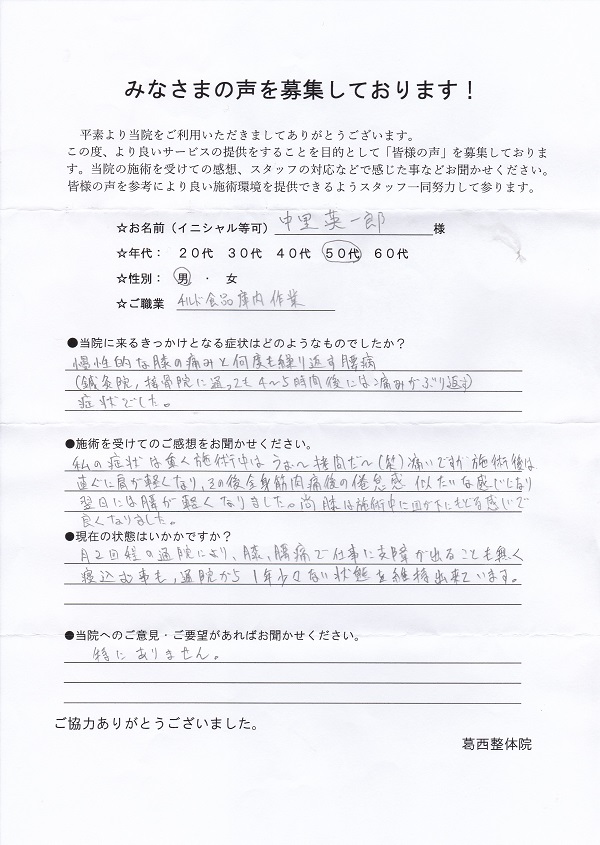 みなさまの声を募集しております！
平素より当院をご利用いただきましてありがとうございます。
この度、より良いサービスの提供をすることを目的として「皆様の声」を募集しておりま
す。当院の施術を受けての感想、スタッフの対応などで感じた事などお聞かせください。
皆様の声を参考により良い施術環境を提供できるようスタッフ一同努力して参ります。
☆お名前（イニシャル等可）中里英一郎様
☆年代： ２０代 ３０代 ４０代 ５０代 ６０代
☆性別： 男 ・ 女
☆ご職業 チルド食品庫内作業
●当院に来るきっかけとなる症状はどのようなものでしたか？
慢性的な膝の痛みと何度も繰り返す腰痛
(鍼灸院,接骨院に通っても4〜5時間後には痛みがぶり返す)
症状でした。
●施術を受けてのご感想をお聞かせください。
私の症状は重く施術中はうぉ〜拷問だ〜(笑)痛いですが施術後は
直ぐに肩が軽くなり,その後全身筋肉痛後の倦怠感似たいな感じになり
翌日には腰が軽くなりました。尚膝は施術中に皿が下にもどる感じで
良くなりました。
●現在の状態はいかかですか？
月2回程の通院により、膝、腰痛で仕事に支障が出ることも無く
寝込む事も,通院から1年少々ない状態を維持出来ています。
●当院へのご意見・ご要望があればお聞かせください。
特にありません。
ご協力ありがとうございました。
葛西整体院